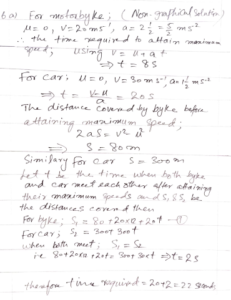 6.a) For motorbyke; (Non-graphical solution)
u = 0, V = 20 ms⁻¹, a = 2½ = 5/2 ms⁻²
∴ the time required to attain maximum
speed; using V = u + at
⟹ t = 8s
For car; u = 0, V = 30 ms⁻¹, a = 1½ ms⁻²
⟹ t = (v-u)/a = 20s
The distance covered by byke before
attaining maximum speed;
2as = v² - u²
⟹ s = 80m
Similarly for car s = 300m
Let t be the time when both byke
and car meet each other after attaining
their maximum speeds and S₁ S₂ be
the distances covered then
For byke; S₁ = 80 + 20x12 + 20t —①
For car; S₂ = 300 + 30t
when both meet; S₁ = S₂
i.e. 80 + 20x12 + 20t = 300 + 30t ⟹ t = 2s
therefore time required = 20 + 2 = 22 seconds